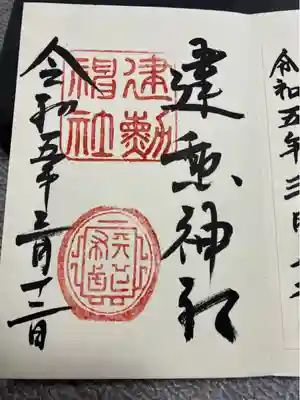 令和五年三月十
建勲神社
建勲
神社
令和五年三月十二日